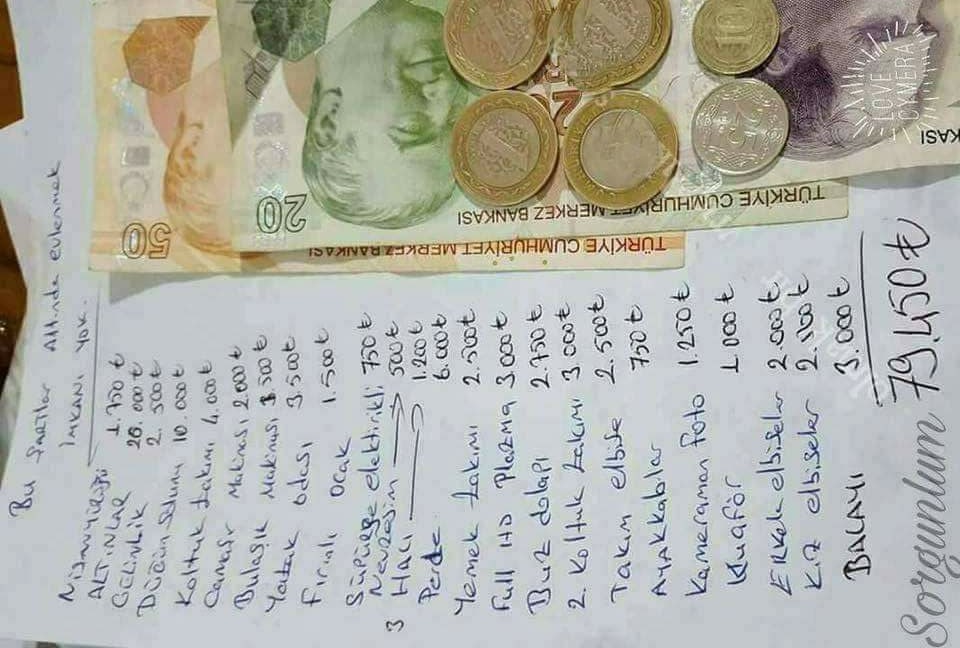 Bu Şartlar Altinda evlenmek
İmkanı Yok.
Nişanyüzüğü 1.750 ₺
ALTINLAR 20.000 ₺
Gelinlik 2.500₺
Düğün Salonu 10.000 ₺
Koltuk takımı 4.000₺
Çamaşır Makinası 2.000 ₺
Bulaşık Makinası 3.500₺
Yatak Odası 3.500₺
Fırınlı Ocak 1.500₺
Süpürge elektirikli 750₺
Nevresim 500₺
3 Halı 1.200₺
Perde 6.000₺
Yemek takımı 2.500₺
Full HD Plazma 3.000₺
Buz dolapı 2.750₺
2. Koltuk takımı 3.000₺
Takım elbise 2.500₺
Ayakkabılar 750₺
Kameraman Foto 1.250₺
Kuaför 1.000₺
Erkek elbiseler 2.000₺
Kız elbiseler 2.100₺
BALAYI 3.000₺
79.450₺
Sorgunlum
50
TÜRKİYE CUMHURİYET MERKEZ BANKASI
20
TÜRKİYE CUMHURİYET MERKEZ BANKASI
KASI
10
25
LOVE
CYMERA